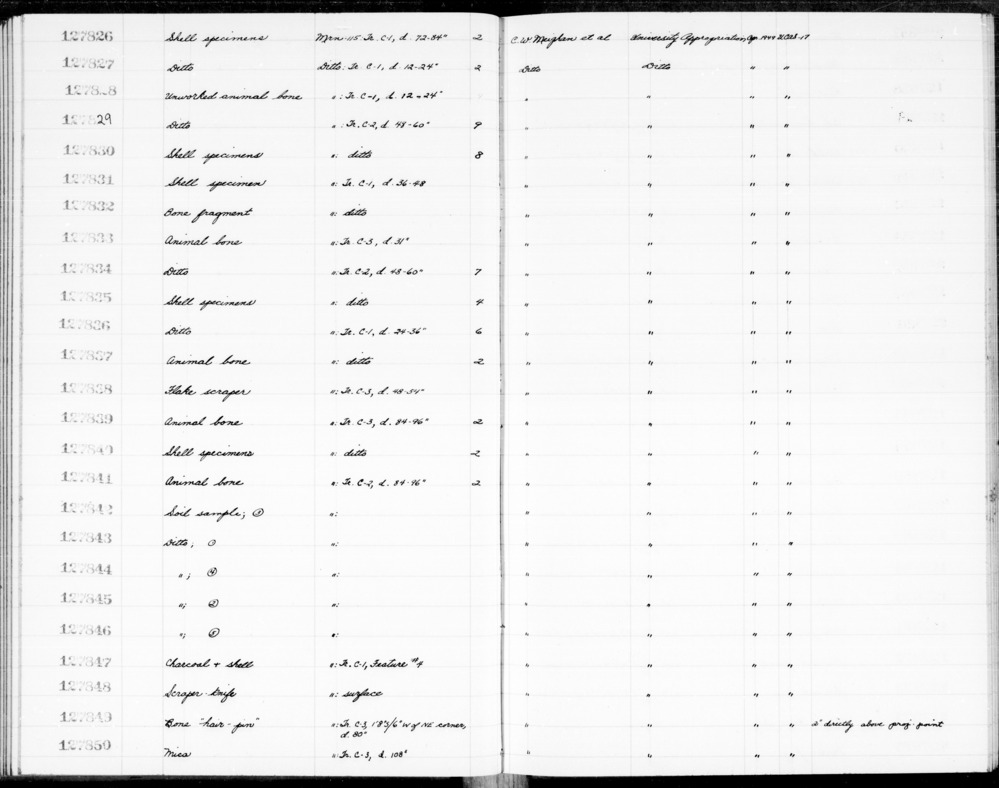 127826 Shell specimens Mrn-115 Tr. C-1, d. 72-84" 2 C. W. Meighan et al University Appropriation, Apr. 1949 UCAS-17
127827 Ditto Ditto: Tr. C-1, d. 12-24" 2 Ditto Ditto " "
127828 Unworked animal bone ": Tr. C-1, d. 12-24" " " " "
127829 Ditto ": Tr. C-2, d. 48-60" 9 " " " "
127830 Shell specimens ": ditto 8 " " " "
127831 Shell specimen ": Tr. C-1, d. 36-48 " " " "
127832 Bone fragment ": ditto " " " "
127833 Animal bone ": Tr. C-3, d. 31" " " " "
127834 Ditto ": Tr. C-2, d. 48-60" 7 " " " "
127835 Shell specimens ": ditto 4 " " " "
127836 Ditto ": Tr. C-1, d. 24-36" 6 " " " "
127837 Animal bone ": ditto 2 " " " "
127838 Flake scraper ": Tr. C-3, d. 48-54" " " " "
127839 Animal bone ": Tr. C-3, d. 84-96" 2 " " " "
127840 Shell specimens ": ditto 2 " " " "
127841 Animal bone ": Tr. C-2, d. 84-96" 2 " " " "
127842 Soil sample; ③ ": " " " "
127843 Ditto; ": " " " "
127844 "; ④ ": " " " "
127845 "; ② ": " " " "
127846 "; ": " " " "
127847 Charcoal + shell ": Tr. C-1, Feature #4 " " " "
127848 Scraper-knife ": surface " " " "
127849 Bone "hair-pin" ": Tr. C-3, W of NE corner, " " " " 2" directly above proj. point
d. 80"
127850 Mica ": Tr. C-3, d. 108" " " " "